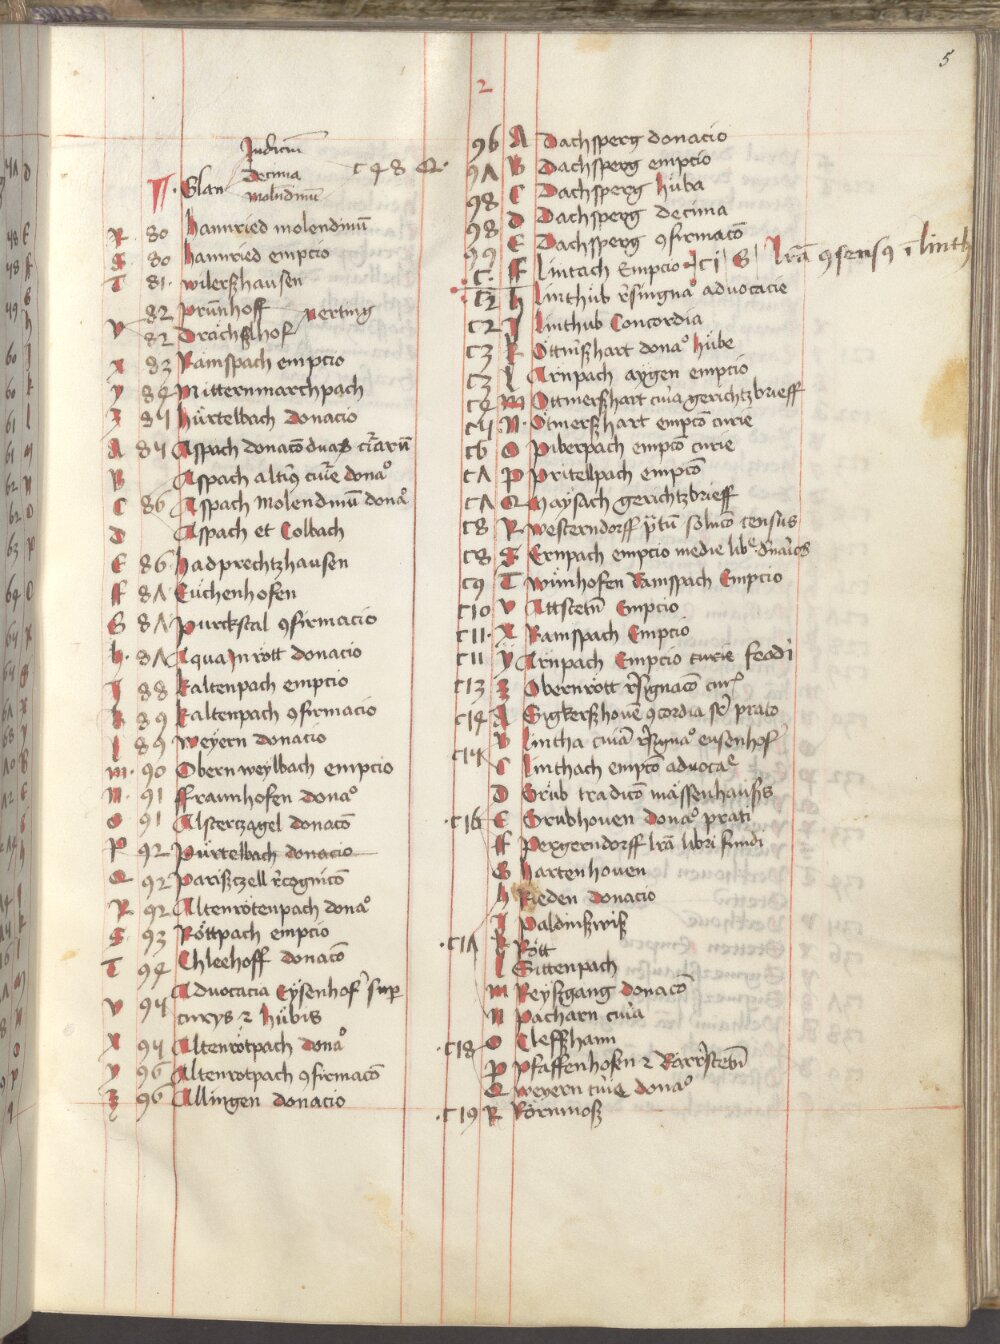 5
2
Judiciu᷑
Decima
Glan
Molndinu᷑
C 48 Q
R 80 Hannried molendinu᷑
S 80 Hannried empcio
T 81 wilerßhausen
82 Prunhoff
perting
V 82 Drächßlhof
X 83 Ramspach empcio
Y 84 Mitternmarchpach
Z 84 Hürtelbach donacio
A 84 Aspach donaco᷑ duaꝝ
B Aspach altiꝰ curie donaᵒ
C 86 Aspach molendinu᷑ donaᵒ
D Aspach et Colbach
E 86 Hadprechtzhausen
F 87 Euchenhofen
G 87 Purckstal ꝯfirmacio
H 87 Aqua In rott donacio
J 88 Kaltenpach empcio
K 89 Kaltenpach ꝯfirmacio
L 89 Weyern donacio
M 90 Obernweylbach empcio
N 91 Fraunhofen donaᵒ
O 91 Alsterczagel donaco᷑
P 92 Pürtelbach donacio
Q 92 Parißczell r̃cognico᷑
R 92 Altenrötenpach donaᵒ
S 93 Röttpach empcio
T 94 Chleehoff donaco᷑
V 94 Advocacia Eysenhof sup
curys ⁊ Hübis
X 94 Altenrötpach donaᵒ
Y 96 Altenrotpach ꝯfirmaco᷑
Z 96 Allingen donacio
96 A Dachsperg donacio
97 B Dachsperg empcio
98 C Dachsperg Huba
98 D Dachsperg decima
99 E Dachsperg ꝯfirmaco᷑
C F Lintach Empcio C1 G lr̃a᷑ ꝯsensꝰ i᷑ linth
C2 H Linthub r̃signaᵒ advocacie
C2 J Linthub Concordia
C3 K Ottmßhart donaᵒ Hube
C3 L Arnpach aygen empcio
C4 M Ottmerßhart curia gerichtzbrieff
C4 N Otmerßhart empco᷑ curie
C6 O Piberpach empco᷑ curie
C7 P Pritelpach empco᷑
C7 Q Maysach gerichtzbrieff
C8 R Westerndorff soluco᷑ census
C8 S Ernpach empcio medie
C9 T Wünhofen Ramspach Empcio
C10 V Attstetn᷑ Empcio
C11 X Ramspach Empcio
C11 Y Arnpach Empcio curie feodi
C13 Z Obernrött r̃signaco᷑ cur᷑
C14 A Sigkerßhoue᷑ ꝯcordia sr̃ prato
B Lintha curia᷑ r̃signaᵒ eusenhof
C14 C Linthach empco᷑ aduocaᵉ
D Grüb tradico᷑ mässenhaußs
C16 E Grubhouen donaᵒ prati
F Pergerndorff lr̃a᷑ libri fundi
G Hartenhouen
H Rieden donacio
J Paldinßwiß
C17 K Rött
L Sittenpach
M Reyßgang donaco᷑
N Pacharn curia
C18 O Cleffham
P Pfaffenhofen ⁊
Q Weyern curie donaᵒ
C19 R Rörmoß